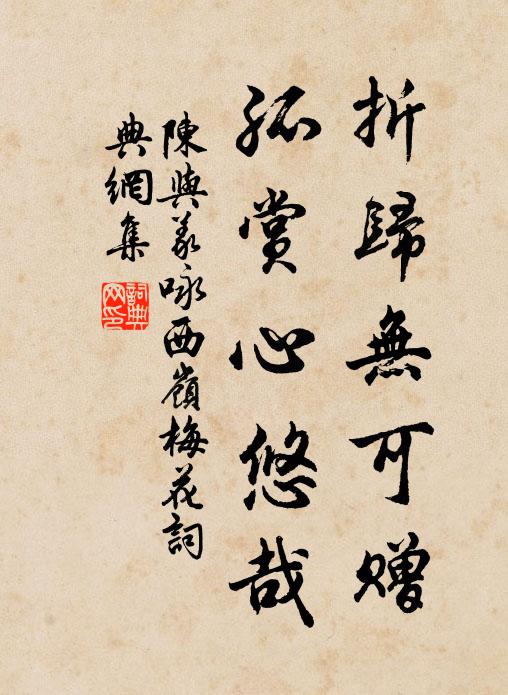 折歸無可贈
孤賞心悠哉
陳與義咏西嶺梅花詞
典網集
詞典網印